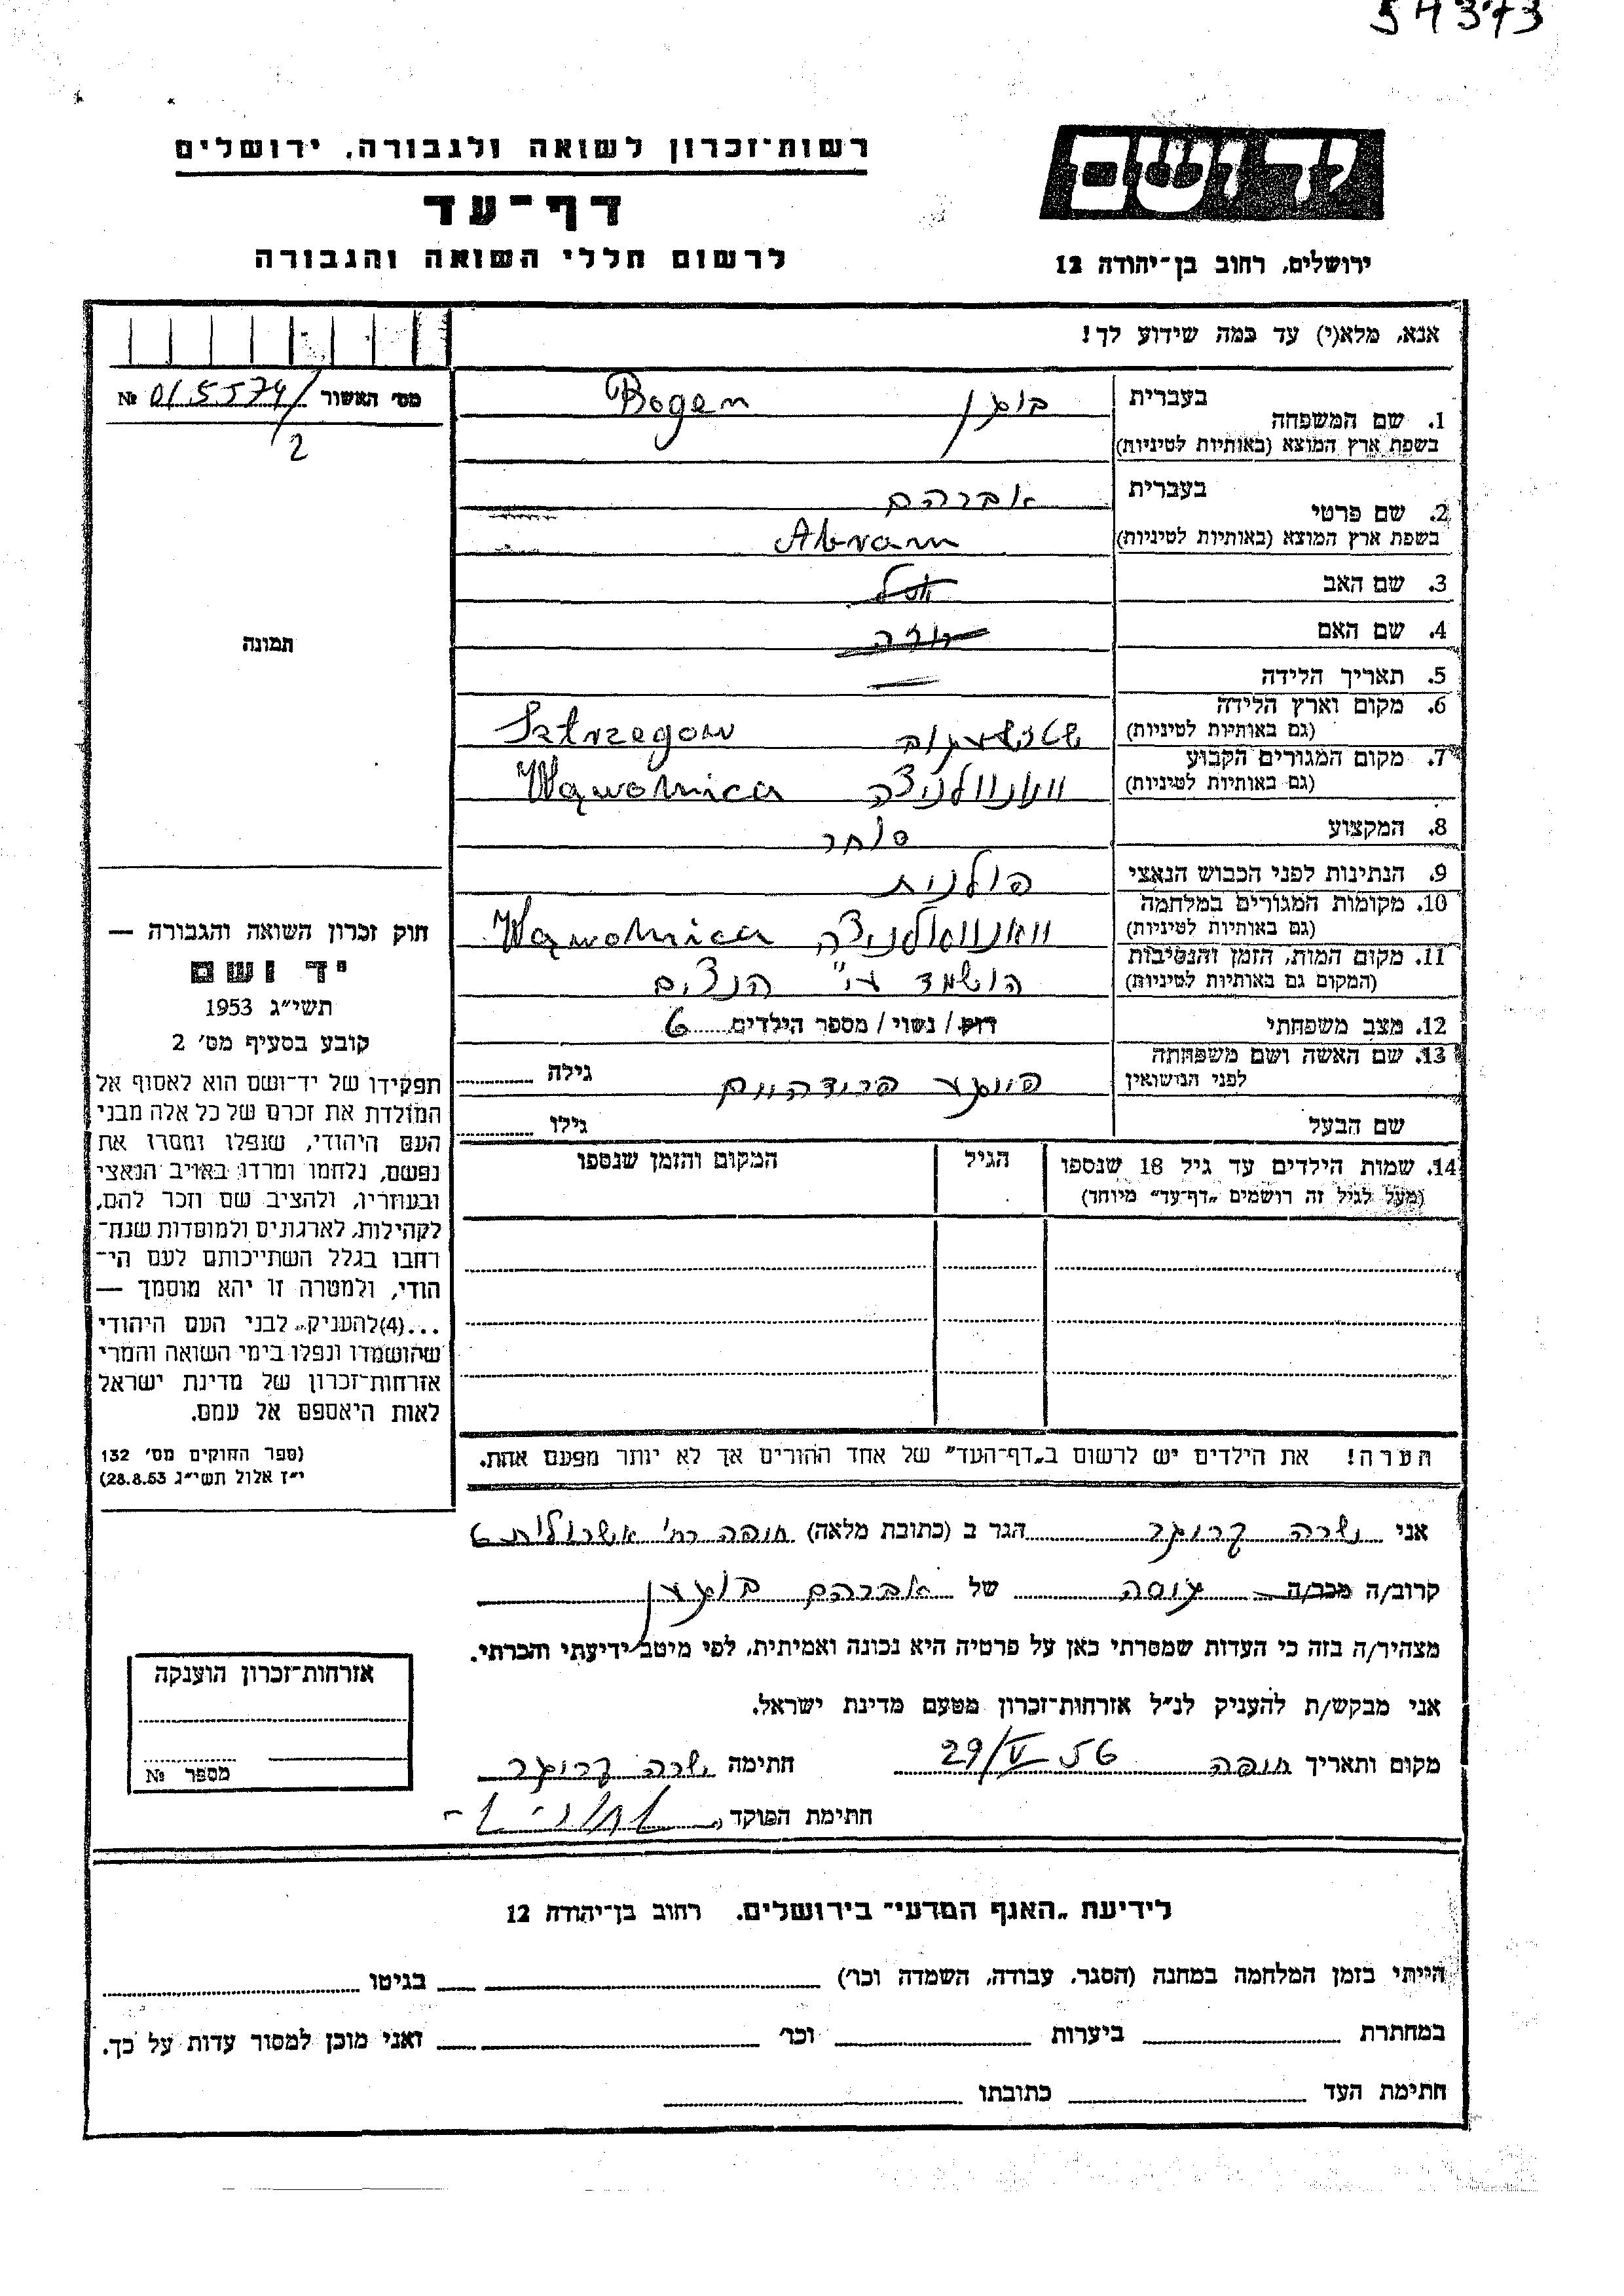 54373
יד ושם
רשות־זכרון לשואה ולגבורה, ירושלים
דף־עד
לרשום חללי השואה והגבורה
ירושלים, רחוב בן־יהודה 12
אנא, מלא(י) עד כמה שידוע לך!
מס׳ האשור № 015574/2
תמונה
1. שם המשפחה בעברית בוגן Bogen
בשפת ארץ המוצא (באותיות לטיניות)
2. שם פרטי בעברית אברהם
בשפת ארץ המוצא (באותיות לטיניות) Abram
3. שם האב
4. שם האם
5. תאריך הלידה —
6. מקום וארץ הלידה
(גם באותיות לטיניות) Sztrzegow
7. מקום המגורים הקבוע
(גם באותיות לטיניות) וואנוולניצה Wąwolnica
8. המקצוע סוחר
9. הנתינות לפני הכבוש הנאצי פולנית
10. מקומות המגורים במלחמה
(גם באותיות לטיניות) וואנוואלניצה Wąwolnica
11. מקום המות, הזמן והנסיבות
(המקום גם באותיות לטיניות) הושמד ע״י הנצים
12. מצב משפחתי רווק / נשוי / מספר הילדים 6
13. שם האשה ושם משפחתה
לפני הנישואין פויגע פרידהיים גילה
שם הבעל גילו
14. שמות הילדים עד גיל 18 שנספו הגיל המקום והזמן שנספו
(מעל לגיל זה רושמים „דף־עד״ מיוחד)
הערה! את הילדים יש לרשום ב„דף־העד״ של אחד ההורים אך לא יותר מפעם אחת.
חוק זכרון השואה והגבורה —
יד ושם
תשי״ג 1953
קובע בסעיף מס׳ 2
תפקידו של יד־ושם הוא לאסוף אל
המולדת את זכרם של כל אלה מבני
העם היהודי, שנפלו ומסרו את
נפשם, נלחמו ומרדו באויב הנאצי
ובעוזריו, ולהציב שם וזכר להם,
לקהילות, לארגונים ולמוסדות שנח־
רבו בגלל השתייכותם לעם הי־
הודי, ולמטרה זו יהא מוסמך —
...(4) להעניק לבני העם היהודי
שהושמדו ונפלו בימי השואה והמרי
אזרחות־זכרון של מדינת ישראל
לאות היאספם אל עמם.
(ספר החוקים מס׳ 132
י״ז אלול תשי״ג 28.8.53)
אני שרה קרוגר הגר ב (כתובת מלאה) חיפה רח׳
קרוב/ה מכר/ה גיסה של אברהם בוגען
מצהיר/ה בזה כי העדות שמסרתי כאן על פרטיה היא נכונה ואמיתית, לפי מיטב ידיעתי והכרתי.
אני מבקש/ת להעניק לנ״ל אזרחות־זכרון מטעם מדינת ישראל.
מקום ותאריך חיפה 29/V 56 חתימה שרה קרוגר
חתימת הפוקד
אזרחות־זכרון הוענקה
מספר №
לידיעת „האגף המדעי״ בירושלים, רחוב בן־יהודה 12
הייתי בזמן המלחמה במחנה (הסגר, עבודה, השמדה וכו׳) בגיטו
במחתרת ביערות וכו׳ ואני מוכן למסור עדות על כך.
חתימת העד כתובתו